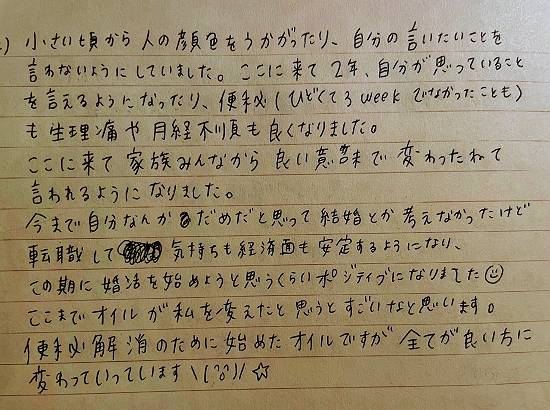 小さい頃から人の顔色をうかがったり、自分の言いたいことを
言わないようにしていました。ここに来て2年、自分が思っていること
を言えるようになったり、便秘(ひどくて3weekでなかったことも)
も生理痛や月経不順も良くなりました。
ここに来て家族みんなから良い意味で変わったねて
言われるようになりました。
今まで自分なんかだめだと思って結婚とか考えなかったけど
転職して気持ちも経済面も安定するようになり、
この期に婚活を始めようと思うくらいポジティブになりました☺
ここまでオイルが私を変えたと思うとすごいなと思います。
便秘解消のために始めたオイルですが全てが良い方に
変わっていっています\(^o^)/☆